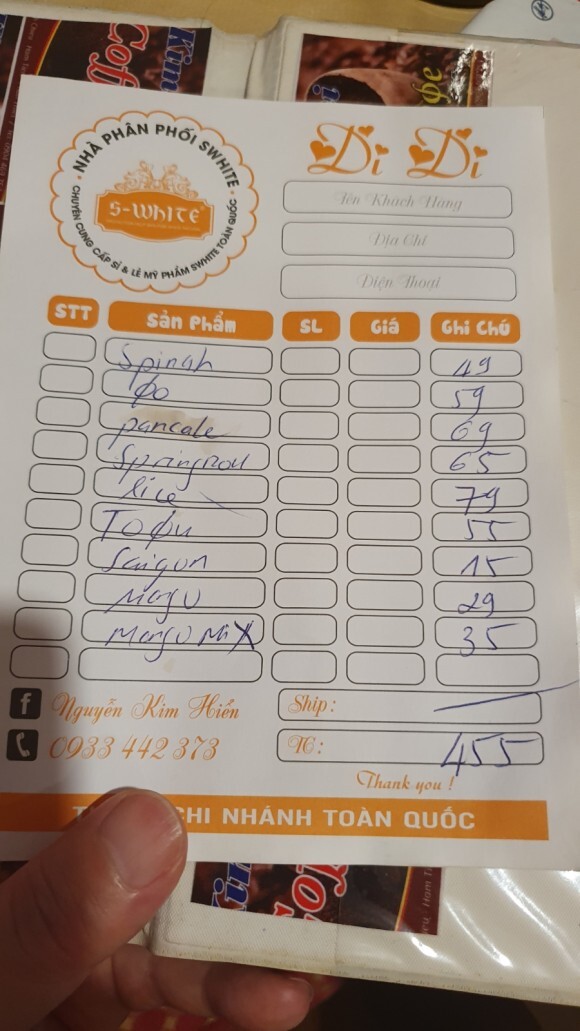 Kim
Coff
фе
NHÀ PHÂN PHỐI SWHITE
S-WHITE
CHUYÊN CUNG CẤP SỈ & LẺ MỸ PHẨM SWHITE TOÀN QUỐC
Di Di
Tên Khách Hàng
Địa Chỉ
Điện Thoại
STT Sản Phẩm SL Giá Ghi Chú
Spinah 49
Фо 59
pancake 69
Springroll 65
rice 79
Tофu 55
Saigon 15
Mango 29
Mango Mix 35
Ship:
Nguyễn Kim Hiển
TC: 455
0933 442 373
Thank you !
CHI NHÁNH TOÀN QUỐC